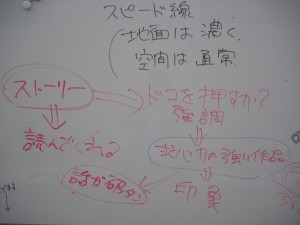 スピード線
(地面は濃く、
空間は通常
ストーリー
ドコを押すか?
強調
読んでくれる
の強い作品
印象